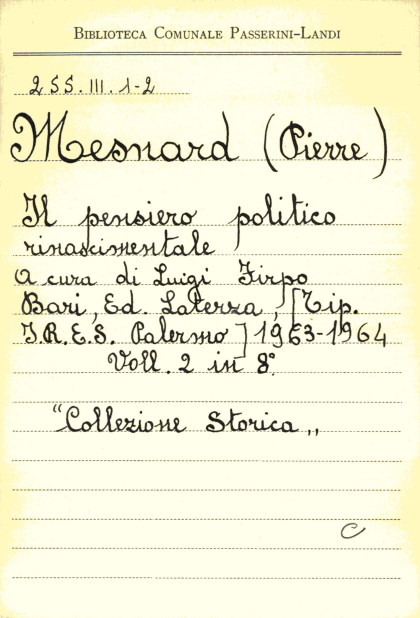 Biblioteca Comunale Passerini-Landi
255.III.1-2
Mesnard (Pierre)
Il pensiero politico
rinascimentale
A cura di Luigi Firpo
Bari, Ed. Laterza, [Tip.
I.R.E.S. Palermo] 1963-1964
Voll. 2 in 8°.
"Collezione Storica„
C